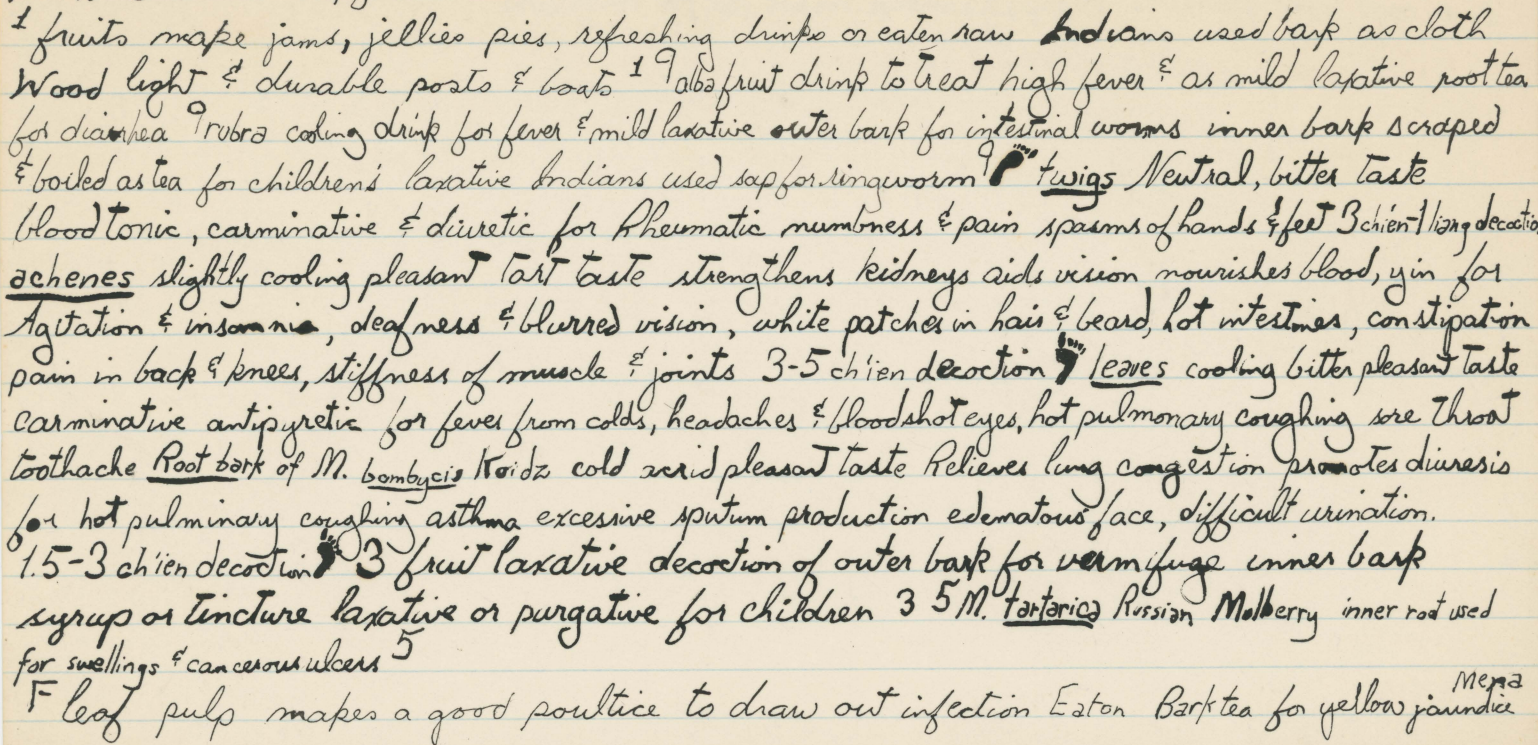 1 fruits make jams, jellies pies, refreshing drinks or eaten raw Indians used bark as cloth
Wood light & durable posts & boats 1 9 alba fruit drink to treat high fever & as mild laxative root tea
for diarrhea 9 rubra cooling drink for fever & mild laxative outer bark for intestinal worms inner bark scraped
& boiled as tea for children's laxative Indians used sap for ringworm 9 twigs Neutral, bitter taste
blood tonic, carminative & diuretic for Rheumatic numbness & pain spasms of hands & feet 3 chien-1 liang decoctio
achenes slightly cooling pleasant tart taste strengthens kidneys aids vision nourishes blood, yin for
Agitation & insomnia, deafness & blurred vision, white patches in hair & beard, hot intestines, constipation
pain in back & knees, stiffness of muscle & joints 3-5 ch'ien decoction leaves cooling bitter pleasant taste
carminative antipyretic for fever from colds, headaches & bloodshot eyes, hot pulmonary coughing sore throat
toothache Root bark of M. bombycis Koidz cold acrid pleasant taste Relieves lung congestion promotes diuresis
for hot pulminary coughing asthma excessive sputum production edematous face, difficult urination.
1.5-3 ch'ien decoction 3 fruit laxative decoction of outer bark for vermifuge inner bark
syrup or tincture laxative or purgative for children 3 5 M. tartarica Russian Mulberry inner root used
for swellings & cancerous ulcers 5
F leaf pulp makes a good poultice to draw out infection Eaton Bark tea for yellow jaundice Mena